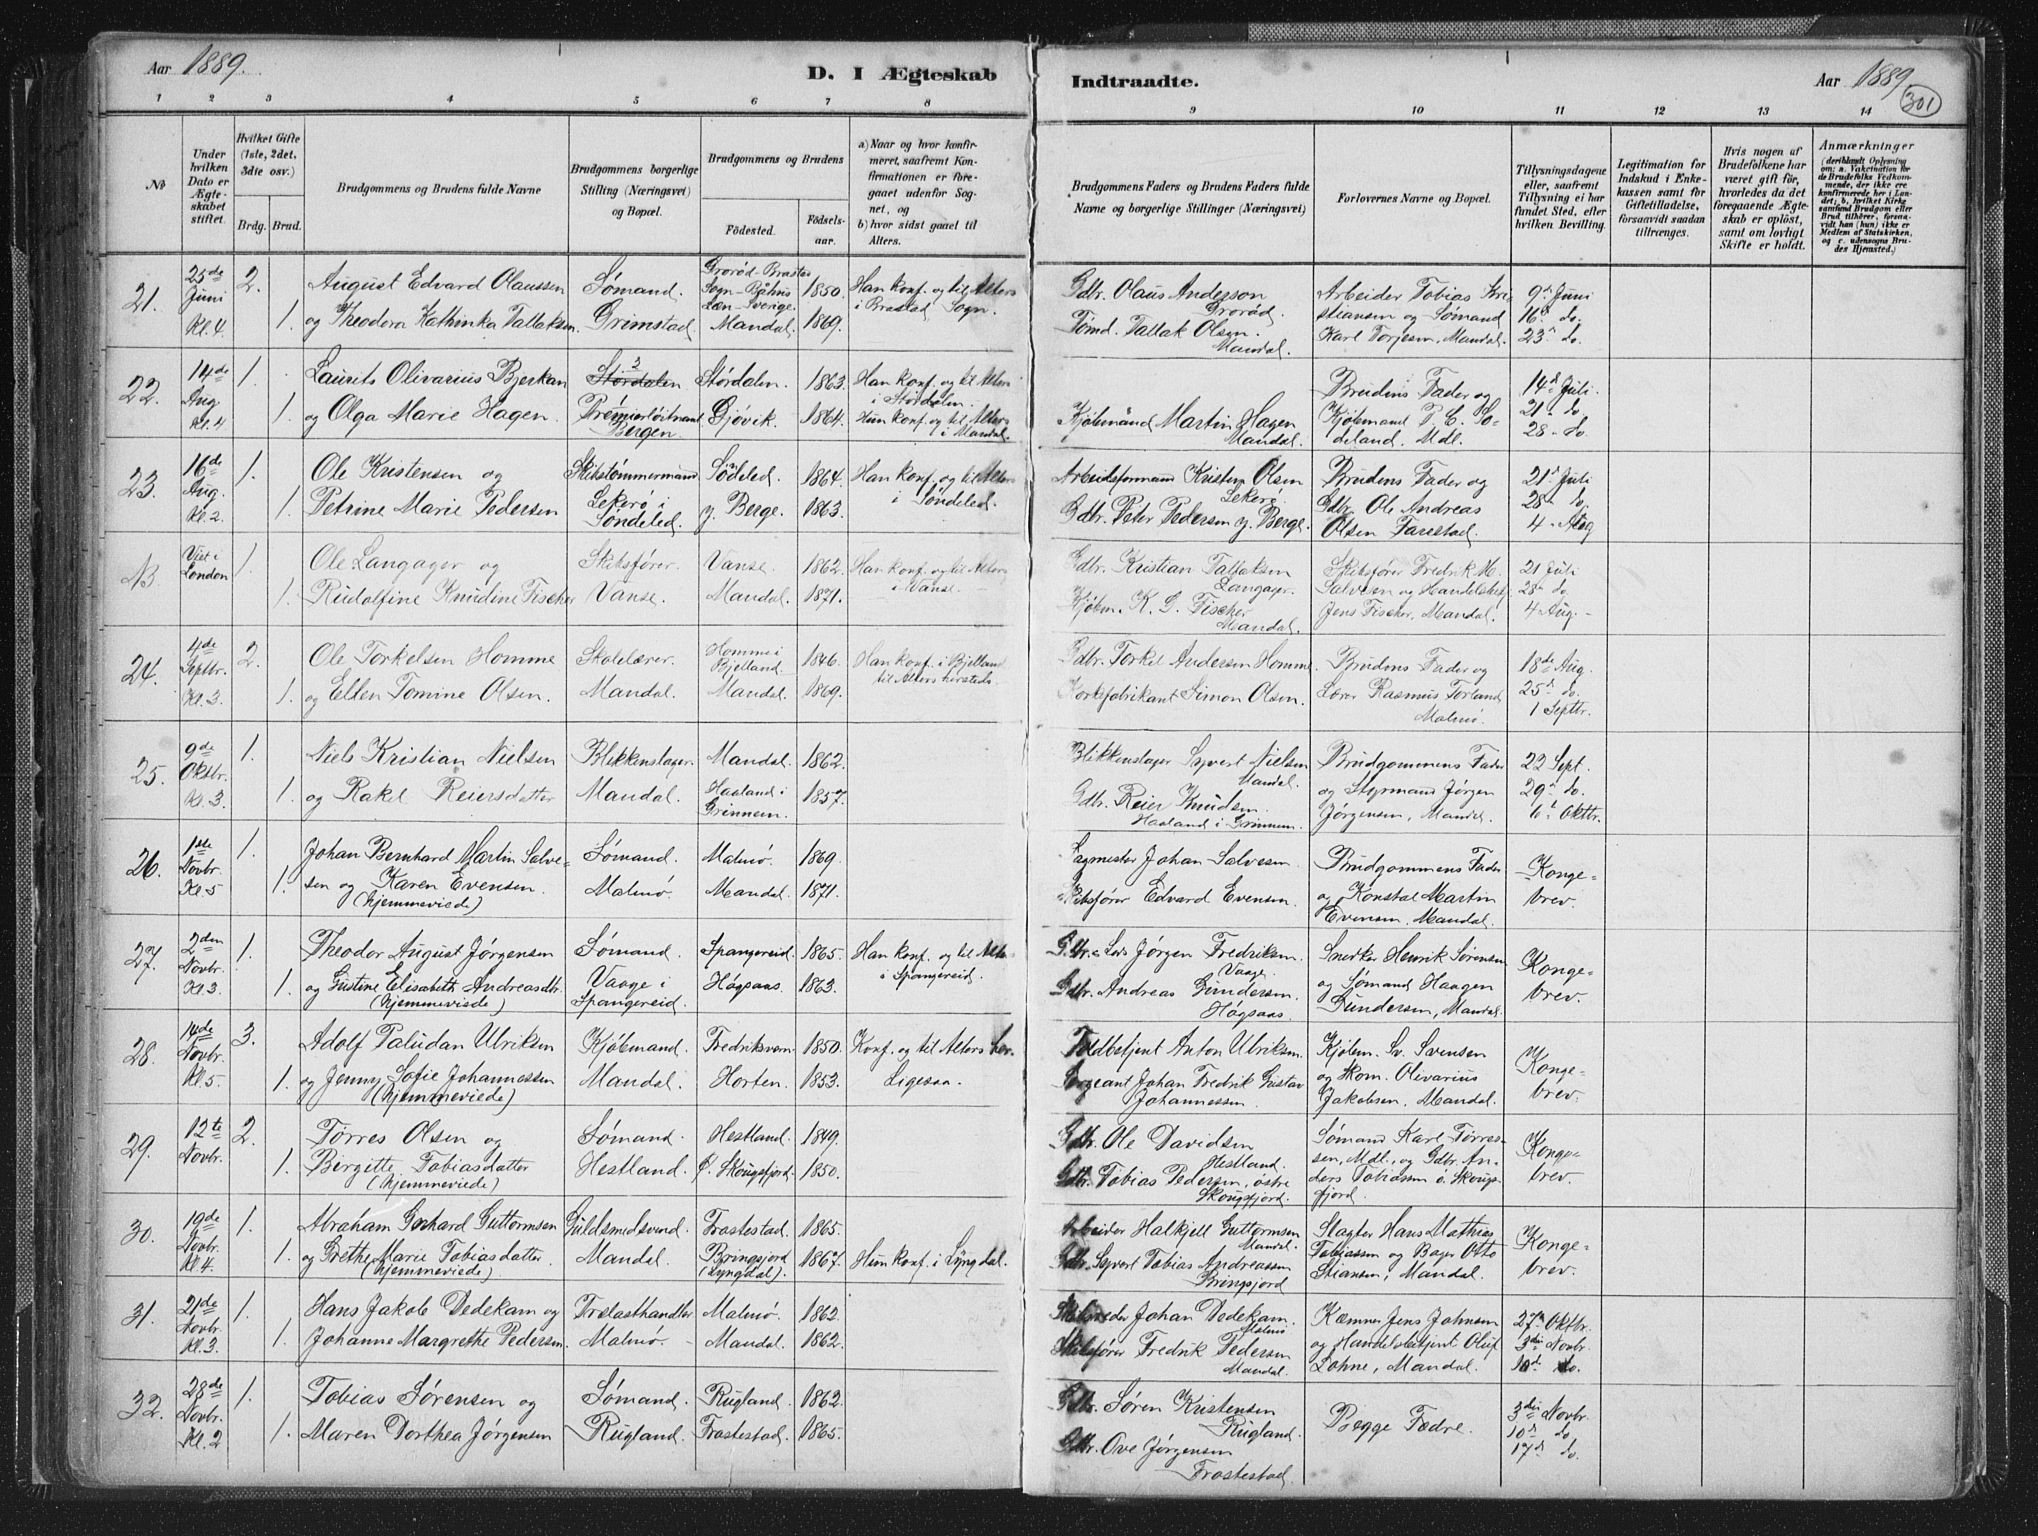 Aar 1889.
D. I Ægteskab
Indtraadte.
Aar 1889
301
1 2 3 4 5 6 7 8
9 10 11 12 13 14
No
Under hvilken Dato er Ægteskabet stiftet.
Hvilket Gifte (1ste, 2det, 3die osv.)
Brdg. Brud.
Brudgommens og Brudens fulde Navne
Brudgommens borgerlige Stilling (Næringsvei) og Bopæl.
Brudgommens og Brudens
Födested.
Födsels-aar.
a) Naar og hvor konfirmeret, saafremt Konfirmationen er foregaaet udenfor Sognet, og
b) hvor sidst gaaet til Alters.
Brudgommens Faders og Brudens Faders fulde Navne og borgerlige Stillinger (Næringsvei)
Forlovernes Navne og Bopæl.
Tillysningsdagene eller, saafremt Tillysning ei har fundet Sted, efter hvilken Bevilling.
Legitimation for Indskud i Enkekassen samt for Giftetilladelse, forsaavidt saadan tiltrænges.
Hvis nogen af Brudefolkene har været gift før, hvorledes da det foregaaende Ægteskab er oplöst, samt om lovligt Skifte er holdt.
Anmærkninger
21.
25de Juni Kl. 4
2.
1.
August Edvard Olaussen
og Theodora Kathinka Tallaksen.
Sømand.
Grimstad
Grorød-Brastad Sogn-Båhus Læn-Sverige.
Mandal.
1850.
1869.
Han konf. og til Alters i Brastad Sogn.
Gdbr. Olaus Anderson Grorød.
Tømd. Tallak Olsen. Mandal.
Arbeider Tobias Kristiansen og Sømand Karl Torjesen, Mandal.
9d Juni
16d do.
23d do.
22.
14de Aug Kl. 4
1.
1.
Laurits Olivarius Bjerkan
og Olga Marie Hagen.
Størdalen
Premierløitnant Bergen.
Størdalen.
Gjøvik.
1863.
1864.
Han konf. og til Alters i Størdalen.
Hun konf. og til Alters i Mandal.
Kjøbmand Martin Hagen Mandal.
Brudens Fader og Kjøbmand P. C. Sodeland. Mdl.
14d Juli.
21 do.
28 do
23.
16de Aug. Kl. 2.
1.
1.
Ole Kristensen og
Petrine Marie Pedersen
Skibstømmermand
Lekerø i Søndeled.
Søndeled.
y. Berge.
1864.
1863.
Han konf. og til Alters i Søndeled.
Arbeidsformand Kristen Olsen Lekerø.
Gdbr. Peter Pedersen y. Berge.
Brudens Fader og Gdbr Ole Andreas Olsen Farestad.
21d Juli
28d do
4 Aug
NB
Viet i London
1.
1.
Ole Langager og
Rudolfine Knudine Fischer
Skibsfører.
Vanse.
Vanse.
Mandal.
1862.
1871.
Han konf. og til Alters i Vanse.
Gdbr. Kristian Tallaksen Langager.
Kjøbm. K. G. Fischer Mandal.
Skibsfører Fredrik M. Salvesen og Handelsbet. Jens Fischer, Mandal.
21 Juli
28 do
4 Aug.
24.
4de Septbr. Kl. 3.
2.
1.
Ole Torkelsen Homme
og Ellen Tomine Olsen.
Skolelærer.
Mandal.
Homme i Bjelland.
Mandal.
1846.
1869.
Han konf. i Bjelland til Alters hersteds.
Gdbr. Torkil Andersen Homme.
Korkefabrikant Simon Olsen.
Brudens Fader og Lærer Rasmus Torland Malmø.
18de Aug.
25d do.
1 Septbr.
25.
9de Oktbr. Kl. 3.
1.
1.
Niels Kristian Nielsen
og Rakel Reiersdatter
Blikkenslager.
Mandal.
Mandal.
Haaland i Grinnem.
1862.
1857.
Blikkenslager Syvert Nielsen Mandal.
Gdbr. Reier Knudsen. Haaland i Grinnem.
Brudgommens Fader og Styrmand Jørgen Jørgensen, Mandal.
22 Sept.
29d do.
6t Oktbr.
26.
1ste Novbr. Kl. 5
1.
1.
Johan Bernhard Martin Salvesen og Karen Evensen.
(hjemmeviede)
Sømand.
Malmø.
Malmø.
Mandal.
1869.
1871.
Sagmester Johan Salvesen.
Skibsfører Edvard Evensen.
Brudgommens Fader og Konstal Martin Evensen, Mandal.
Kongebrev.
27.
2den Novbr. Kl. 3.
1.
1.
Theodor August Jørgensen
og Gustine Elisabeth Andreasdtr.
(hjemmeviede)
Sømand.
Vaage i Spangereid.
Spangereid.
Høgsaas.
1865.
1863.
Han konf. og til Alters i Spangereid.
Gdbr. Lods Jørgen Fredriksen. Vaage.
Gdbr. Andreas Gundersen. Høgsaas.
Snerker Henrik Sørensen og Sømand Haagen Gundersen, Mandal.
Kongebrev.
28.
14de Novbr. Kl. 5.
3.
1.
Adolf Paludan Ulriksen
og Jenny Sofie Johannessen
(hjemmeviede)
Kjøbmand.
Mandal.
Fredriksværn.
Horten.
1850.
1853.
Konf. og til Alters her.
Ligesaa.
Toldbetjent Anton Ulriksen.
Sergeant Johan Fredrik Gustav Johannessen.
Kjøbm. Sv. Svensen og Skom. Olivarius Jakobsen, Mandal.
Kongebrev.
29.
12te Novbr.
2.
1.
Tørres Olsen og
Birgitte Tobiasdatter
(hjemmeviede)
Sømand.
Hestland.
Hestland.
ø. Skougsfjord.
1849.
1850.
Gdbr. Ole Davidsen Hestland.
Gdbr. Tobias Pedersen, østre Skougsfjord.
Sømand Karl Tørresen, Mdl., og Gdbr. Anders Tobiassen ö. Skougsfjord.
Kongebrev.
30.
19de Novbr. Kl. 4.
1.
1.
Abraham Gerhard Guttormsen
og Grethe Marie Tobiasdatter.
(hjemmeviede)
Guldsmedsvend.
Mandal.
Frostestad.
Bringsjord (Lyngdal).
1865.
1867.
Hun konf. i Lyngdal.
Arbeider Halkjell Guttormsen Mandal.
Gdbr. Syvert Tobias Andreassen Bringsjord
Slagter Hans Mathias Tobiassen og Bager Otto Stiansen, Mandal.
Kongebrev.
31.
21de Novbr. Kl. 3.
1.
1.
Hans Jakob Dedekam og
Johanne Margrethe Pedersen.
Trælasthandler
Malmø.
Malmø.
Mandal.
1862.
1862.
Skibsreder Johan Dedekam. Malmø
Skibsfører Fredrik Pedersen Mandal.
Kæmner Jens Johnsen og Handelsbetjent Oluf Lohne, Mandal.
27d Oktbr.
3die Novbr.
10d do.
32.
28de Novbr. Kl. 2
1.
1.
Tobias Sørensen og
Maren Dorthea Jørgensen
Sømand.
Rugland.
Rugland.
Frostestad.
1862.
1865.
Gdbr. Søren Kristensen Rugland.
Gdbr. Ove Jørgensen Frostestad.
Begge Fædre.
3die Novbr.
10d do
17d do.